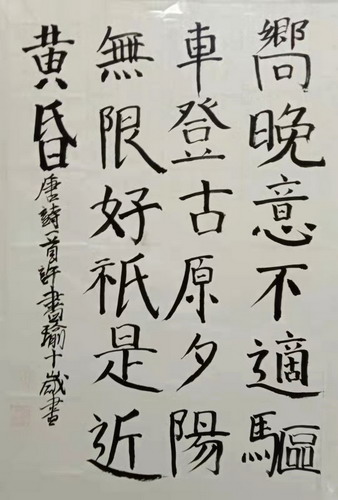 嚮晚意不適驅
車登古原夕陽
無限好祇是近
黃昏
唐詩一首許書瑜十歲書